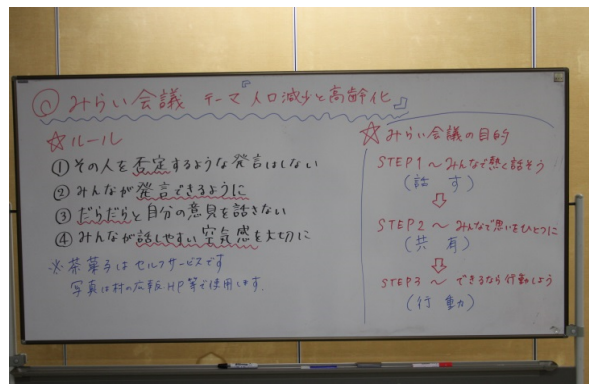 ◎ みらい会議 テーマ『人口減少と高齢化』
☆ルール
① その人を否定するような発言はしない
② みんなが発言できるように
③ だらだらと自分の意見を話さない
④ みんなが話しやすい空気感を大切に
※ 茶菓子はセルフサービスです
写真は村の広報HP等で使用します.
☆みらい会議の目的
STEP1~みんなで熱く話そう
(話す)
⇩
STEP2~みんなで思いをひとつに
(共有)
⇩
STEP3~できるなら行動しよう
(行動)